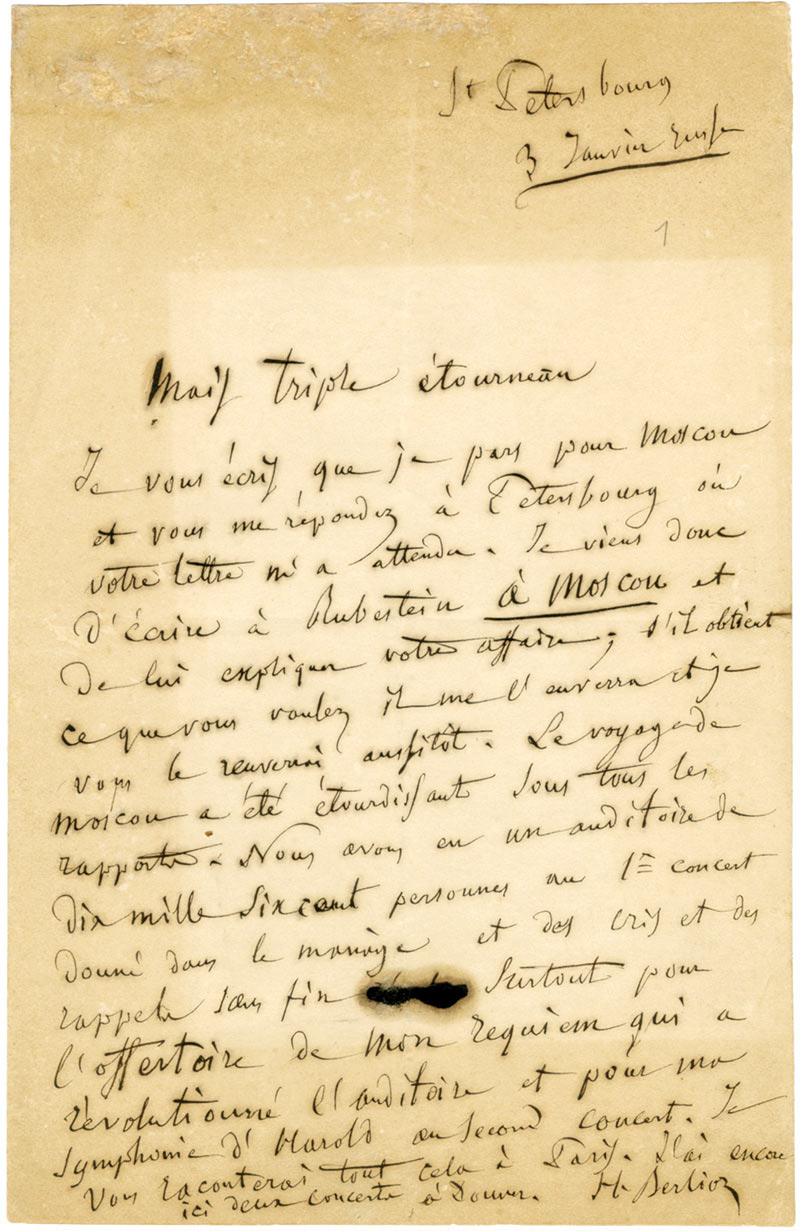 St Petersbourg
3 Janvier Russe
1
Mais triple étourneau
Je vous écris que je pars pour Moscou
et vous me répondez à Petersbourg où
votre lettre m'a attendu. Je viens donc
d'écrire à Rubestein à Moscou et
de lui expliquer votre affaire; s'il obtient
ce que vous voulez il me l'enverra et je
vous le renverrai aussitôt. Le voyage de
Moscou a été étourdissant sous tous les
rapports. Nous avons eu un auditoire de
dix mille six cent personnes au 1er concert
donné dans le manège et des cris et des
rappels sans fin surtout pour
l'offertoire de mon requiem qui a
révolutionné l'auditoire et pour ma
symphonie d'Harold au second concert. Je
vous raconterai tout cela à Paris. J'ai encore
ici deux concerts à donner. H. Berlioz